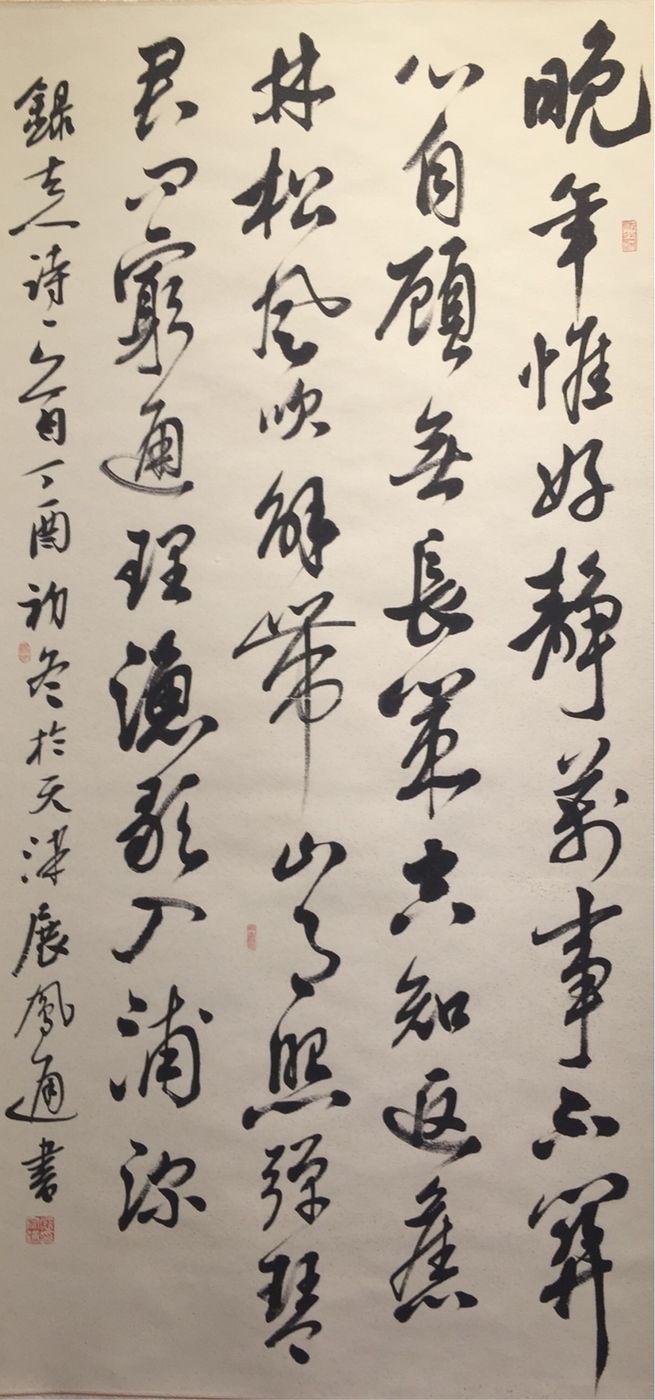 晚年惟好靜萬事不關
心自顧無長策空知返舊
林松風吹解帶山月照彈琴
君问窮通理漁歌入浦深
錄古人詩一首丁酉初冬於天津展鳳通書